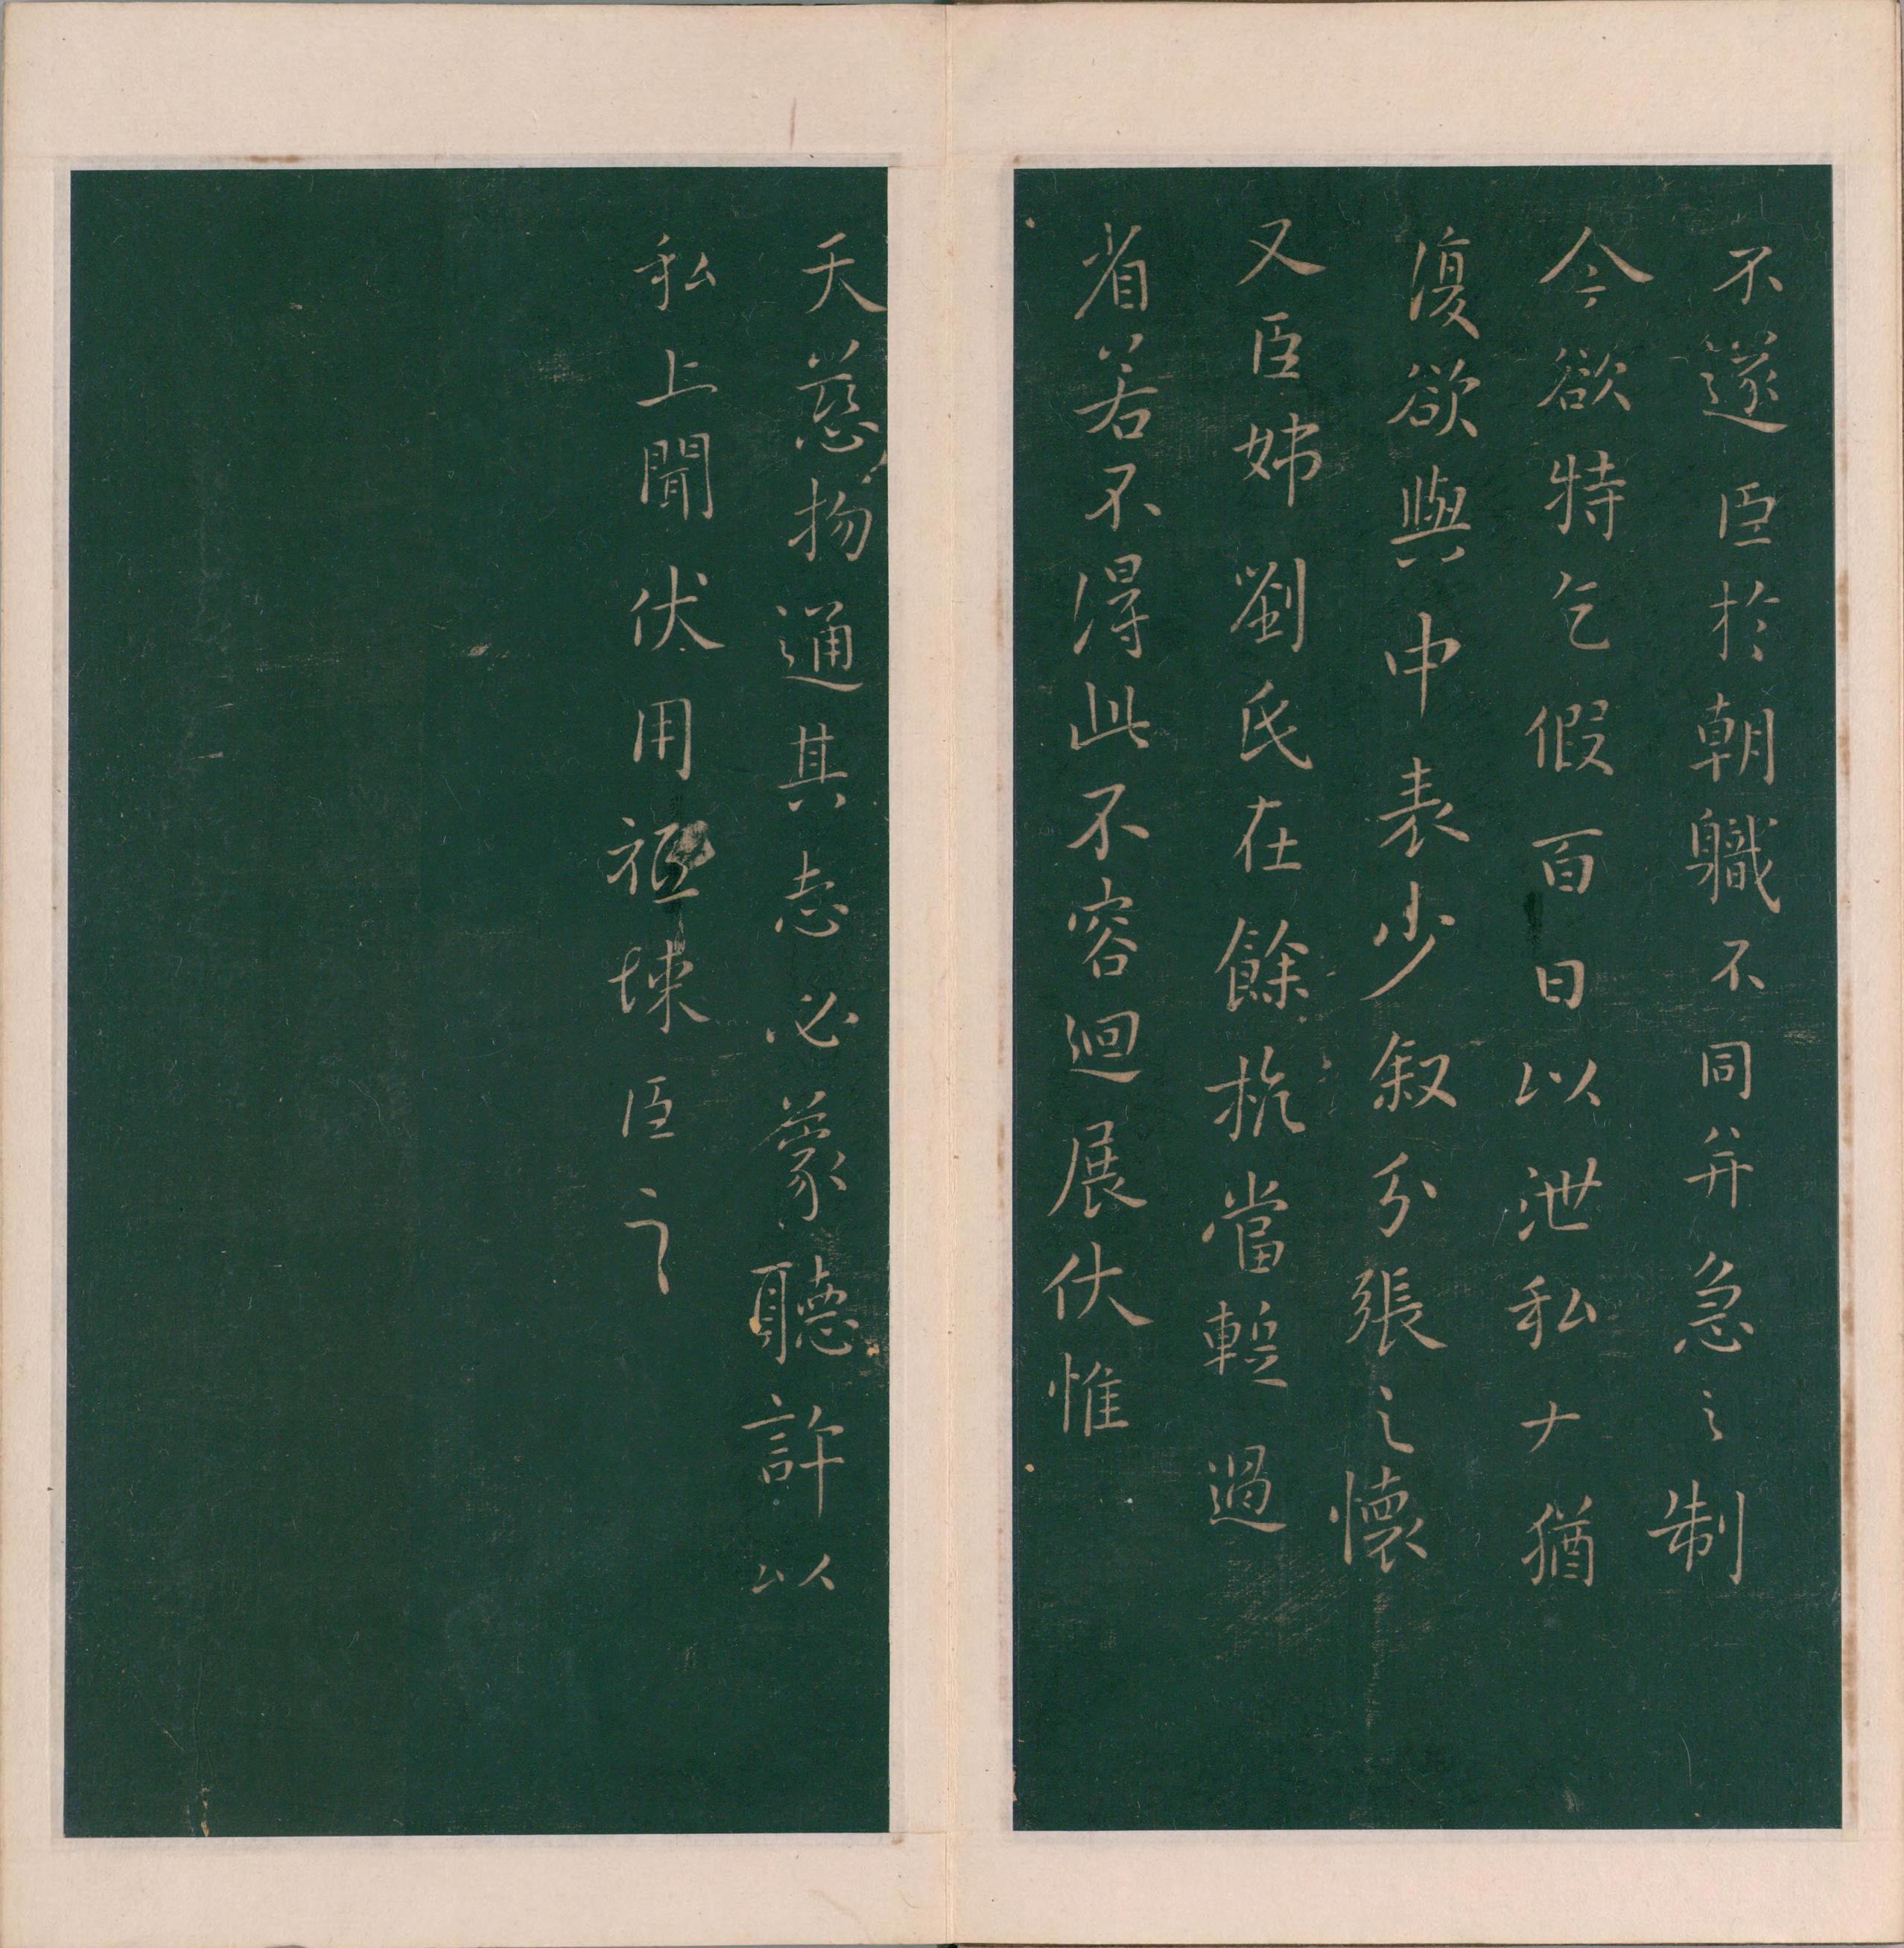 不遂臣於朝職不同并急之制
今欲特乞假百日以泄私大猶
復欲與中表少叙分張之懷
又臣姊劉氏在餘杭當蹔過
省若不得此不容迴展伏惟
天慈物通其志必蒙聽許以
私上聞伏用祗悚臣之